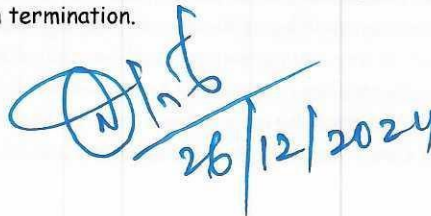 termination.
26/12/2024